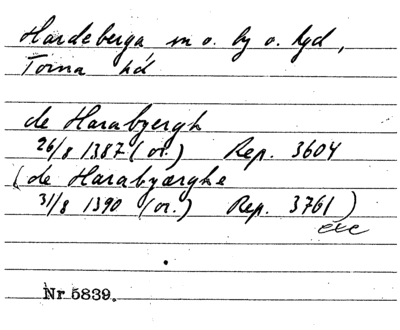 Hardeberga, sn o. by o. hgd,
Torna hd
de Harabyergh
26/8 1387 (or.) Rep. 3604
(de Harabyærghe
31/8 1390 (or.) Rep. 3761)
exc
Nr 5839.